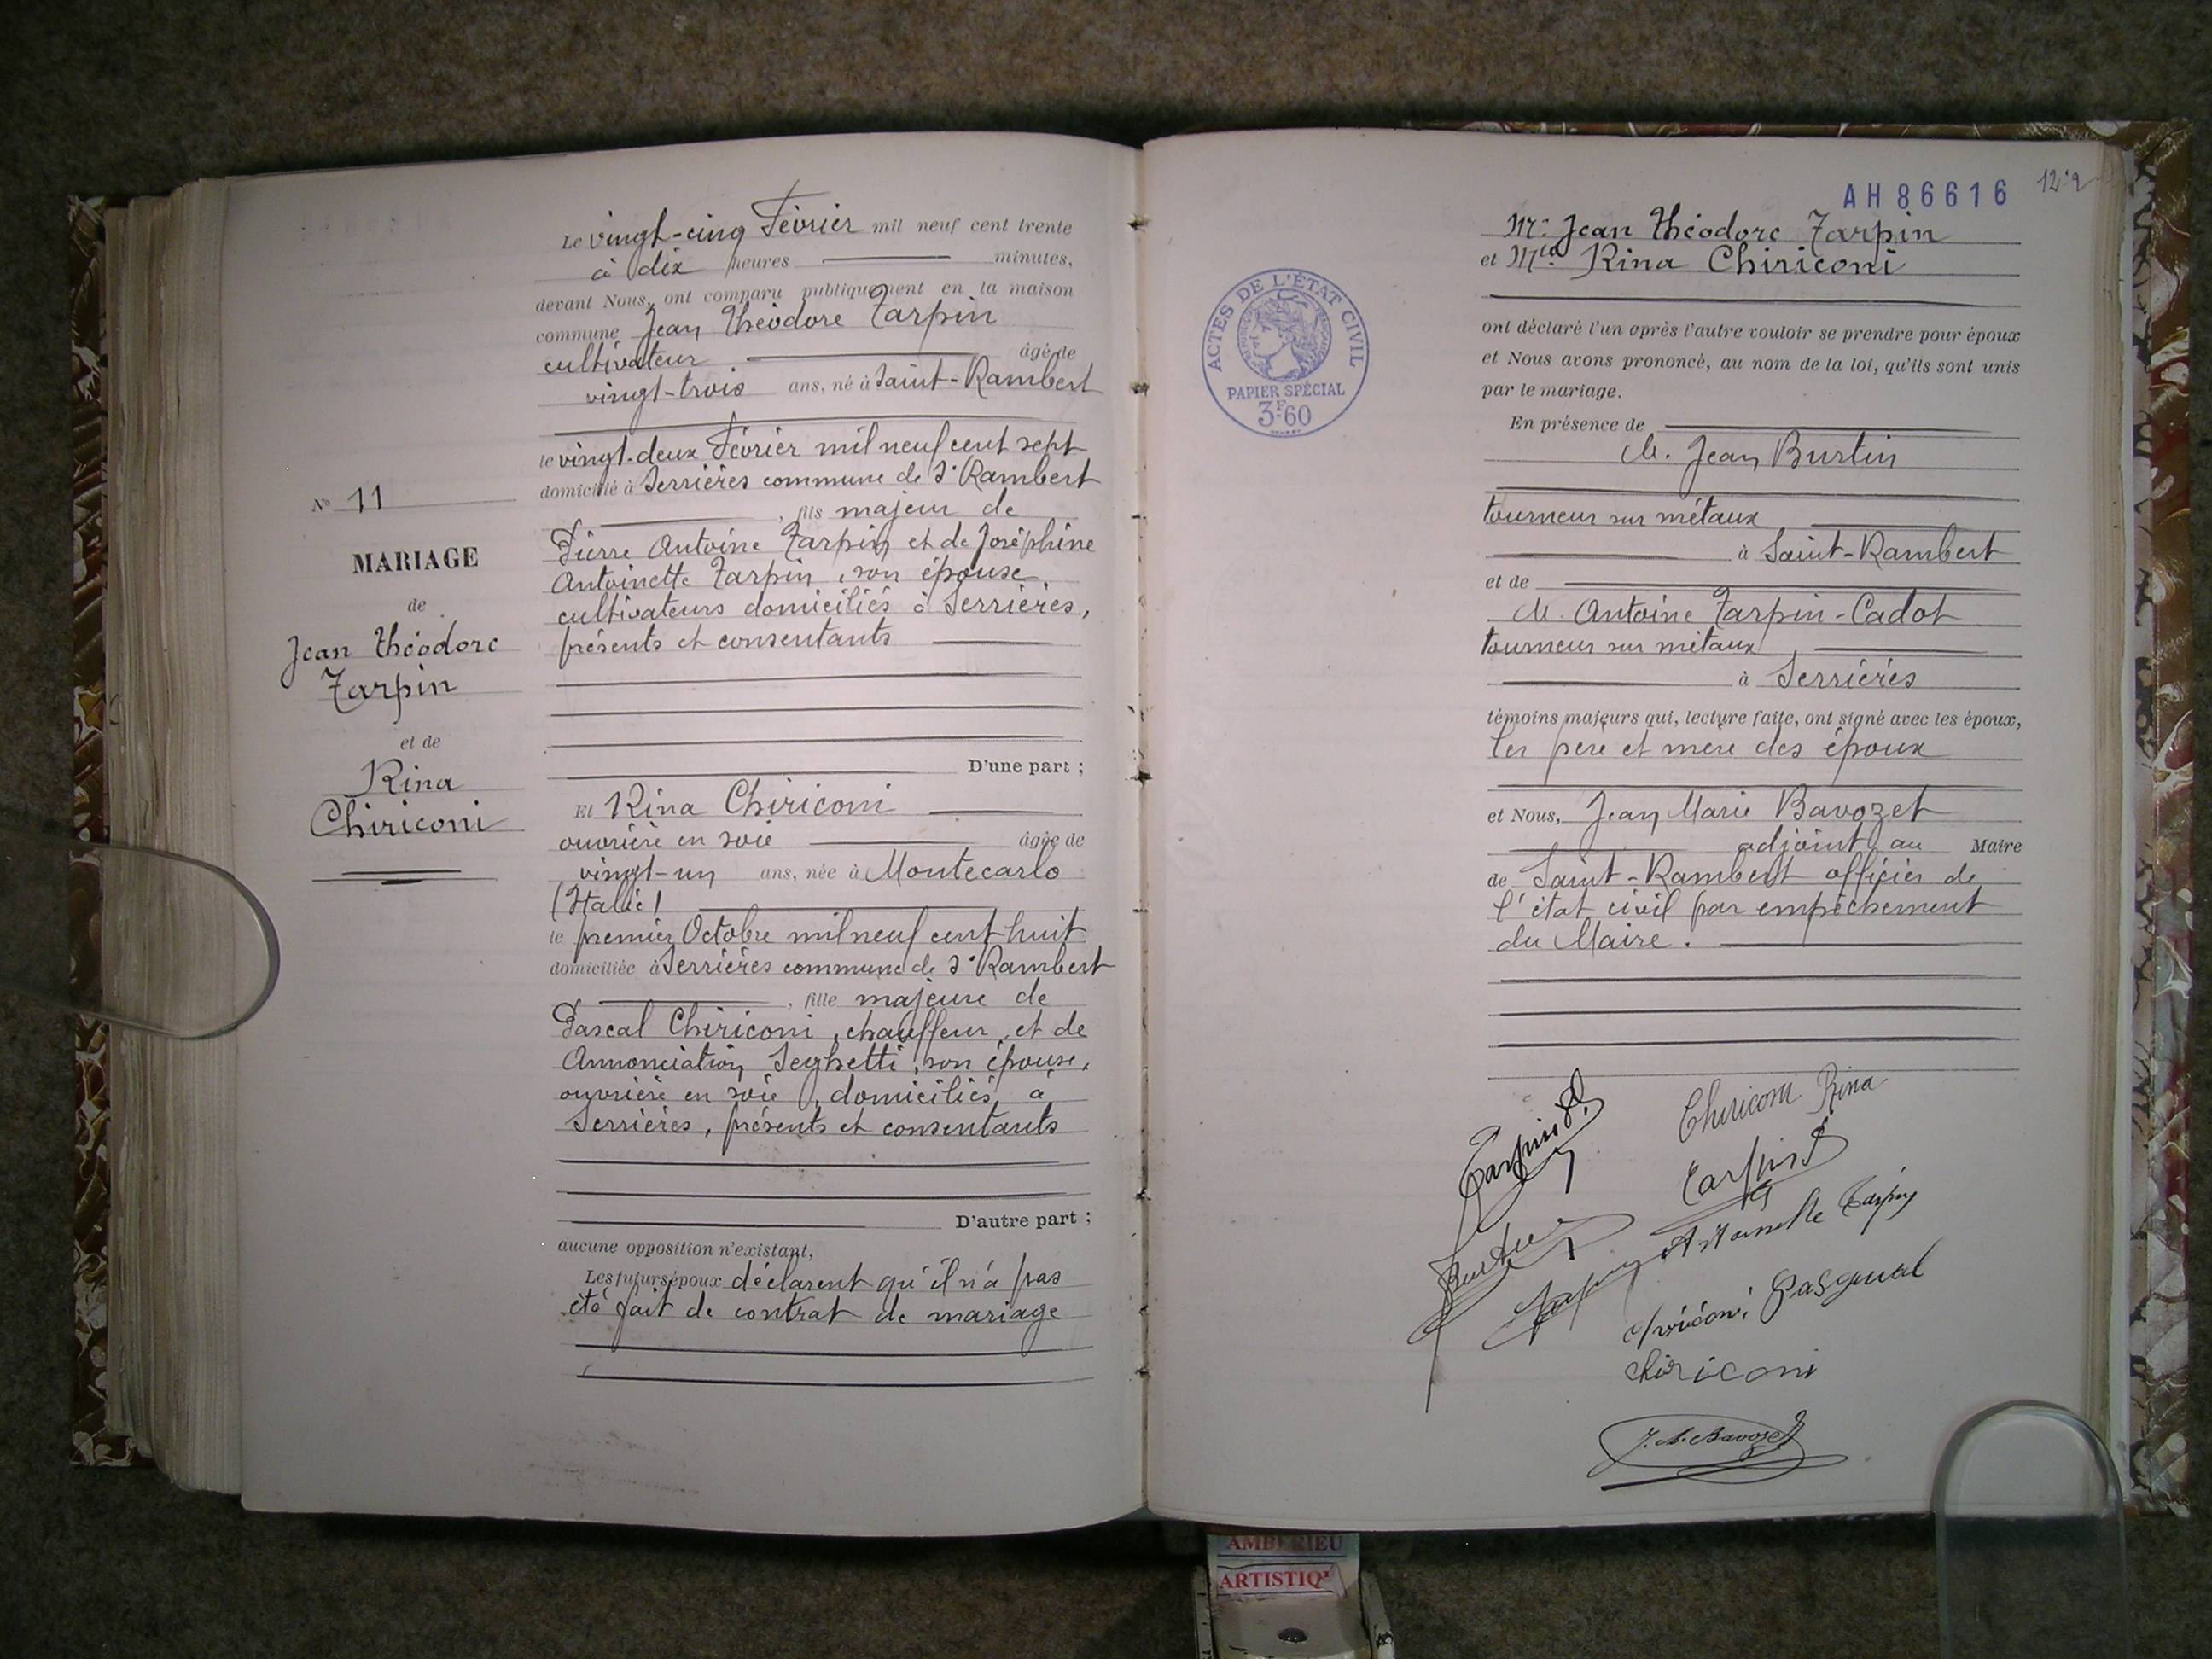 Nº 11
MARIAGE
de
Jean Théodore
Tarpin
et de
Rina
Chiriconi
Le vingt-cinq Février mil neuf cent trente
à dix heures minutes,
devant Nous, ont comparu publiquement en la maison
commune Jean Théodore Tarpin
cultivateur âgé de
vingt-trois ans, né à Saint-Rambert
le vingt-deux Février mil neuf cent sept
domicilié à Serrières commune de St Rambert
, fils majeur de
Pierre Antoine Tarpin et de Joséphine
Antoinette Tarpin, son épouse,
cultivateurs domiciliés à Serrières,
présents et consentants
D'une part ;
Et Rina Chiriconi
ouvrière en soie âgée de
vingt-un ans, née à Montecarlo
(Italie)
le premier Octobre mil neuf cent huit
domiciliée à Serrières commune de St Rambert
, fille majeure de
Pascal Chiriconi, chauffeur, et de
Annonciation Seghetti, son épouse,
ouvrière en soie, domiciliés à
Serrières, présents et consentants
D'autre part ;
aucune opposition n'existant,
Les futurs époux déclarent qu'il n'a pas
été fait de contrat de mariage
AH 86616
Mr Jean Théodore Tarpin
et Mlle Rina Chiriconi
ACTES DE L'ÉTAT CIVIL
PAPIER SPÉCIAL
3F60
ont déclaré l'un après l'autre vouloir se prendre pour époux
et Nous avons prononcé, au nom de la loi, qu'ils sont unis
par le mariage.
En présence de
M. Jean Burtin
tourneur sur métaux
à Saint-Rambert
et de
M. Antoine Tarpin-Cadot
tourneur sur métaux
à Serrières
témoins majeurs qui, lecture faite, ont signé avec les époux,
les père et mère des époux
et Nous, Jean Marie Bavozet
adjoint au Maire
de Saint-Rambert officier de
l'état civil par empêchement
du Maire.
Chiriconi Rina
Tarpin
Tarpin
Burtin
Antoinette Tarpin
Chiriconi Pasqual
Chiriconi
J. M. Bavozet
AMBÉRIEU
ARTISTIQ